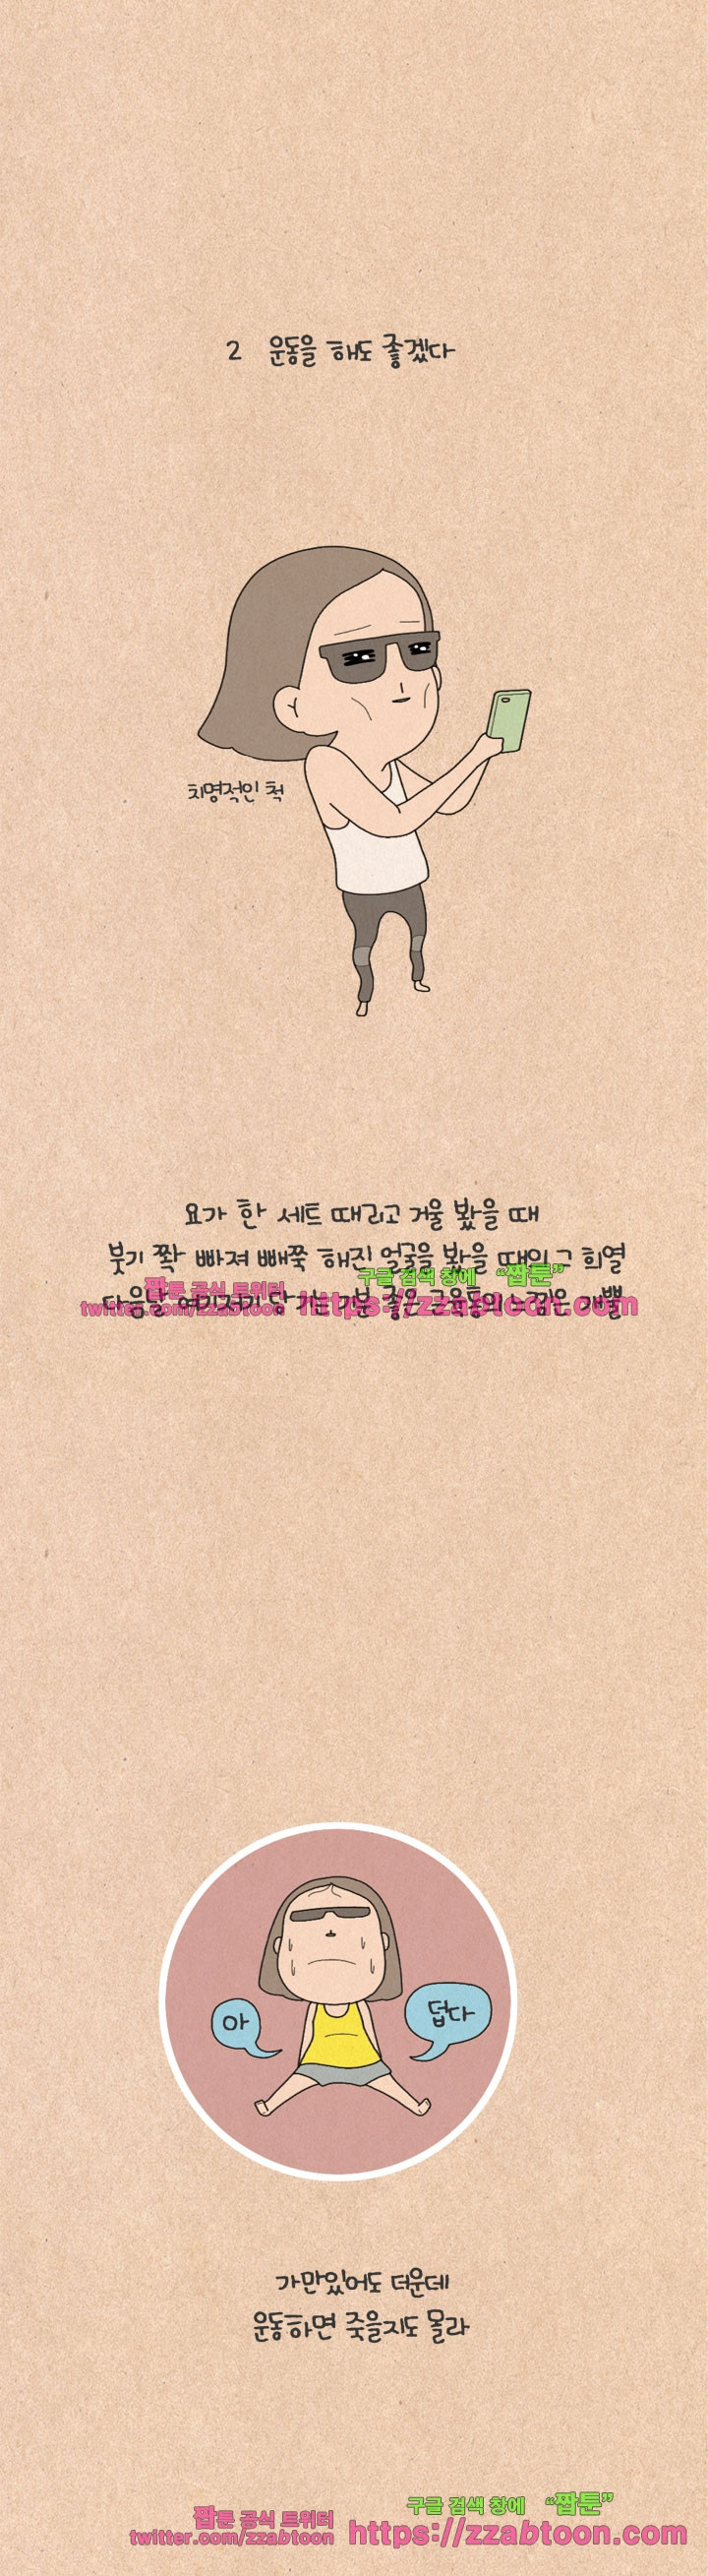 2 운동을 해도 좋겠다
치명적인 척
요가 한 세트 때리고 거울 봤을 때
붓기 쫙 빠져 빼쭉 해진 얼굴을 봤을 때의 그 희열
구글 검색 창에 “짭툰”
다음날 여기저기 당기는 기분 좋은 근육통의 느낌은 개뿔
짭툰 공식 트위터
twitter.com/zzabtoon https://zzabtoon.com
아
덥다
가만있어도 더운데
운동하면 죽을지도 몰라
구글 검색 창에 “짭툰”
짭툰 공식 트위터
twitter.com/zzabtoon https://zzabtoon.com